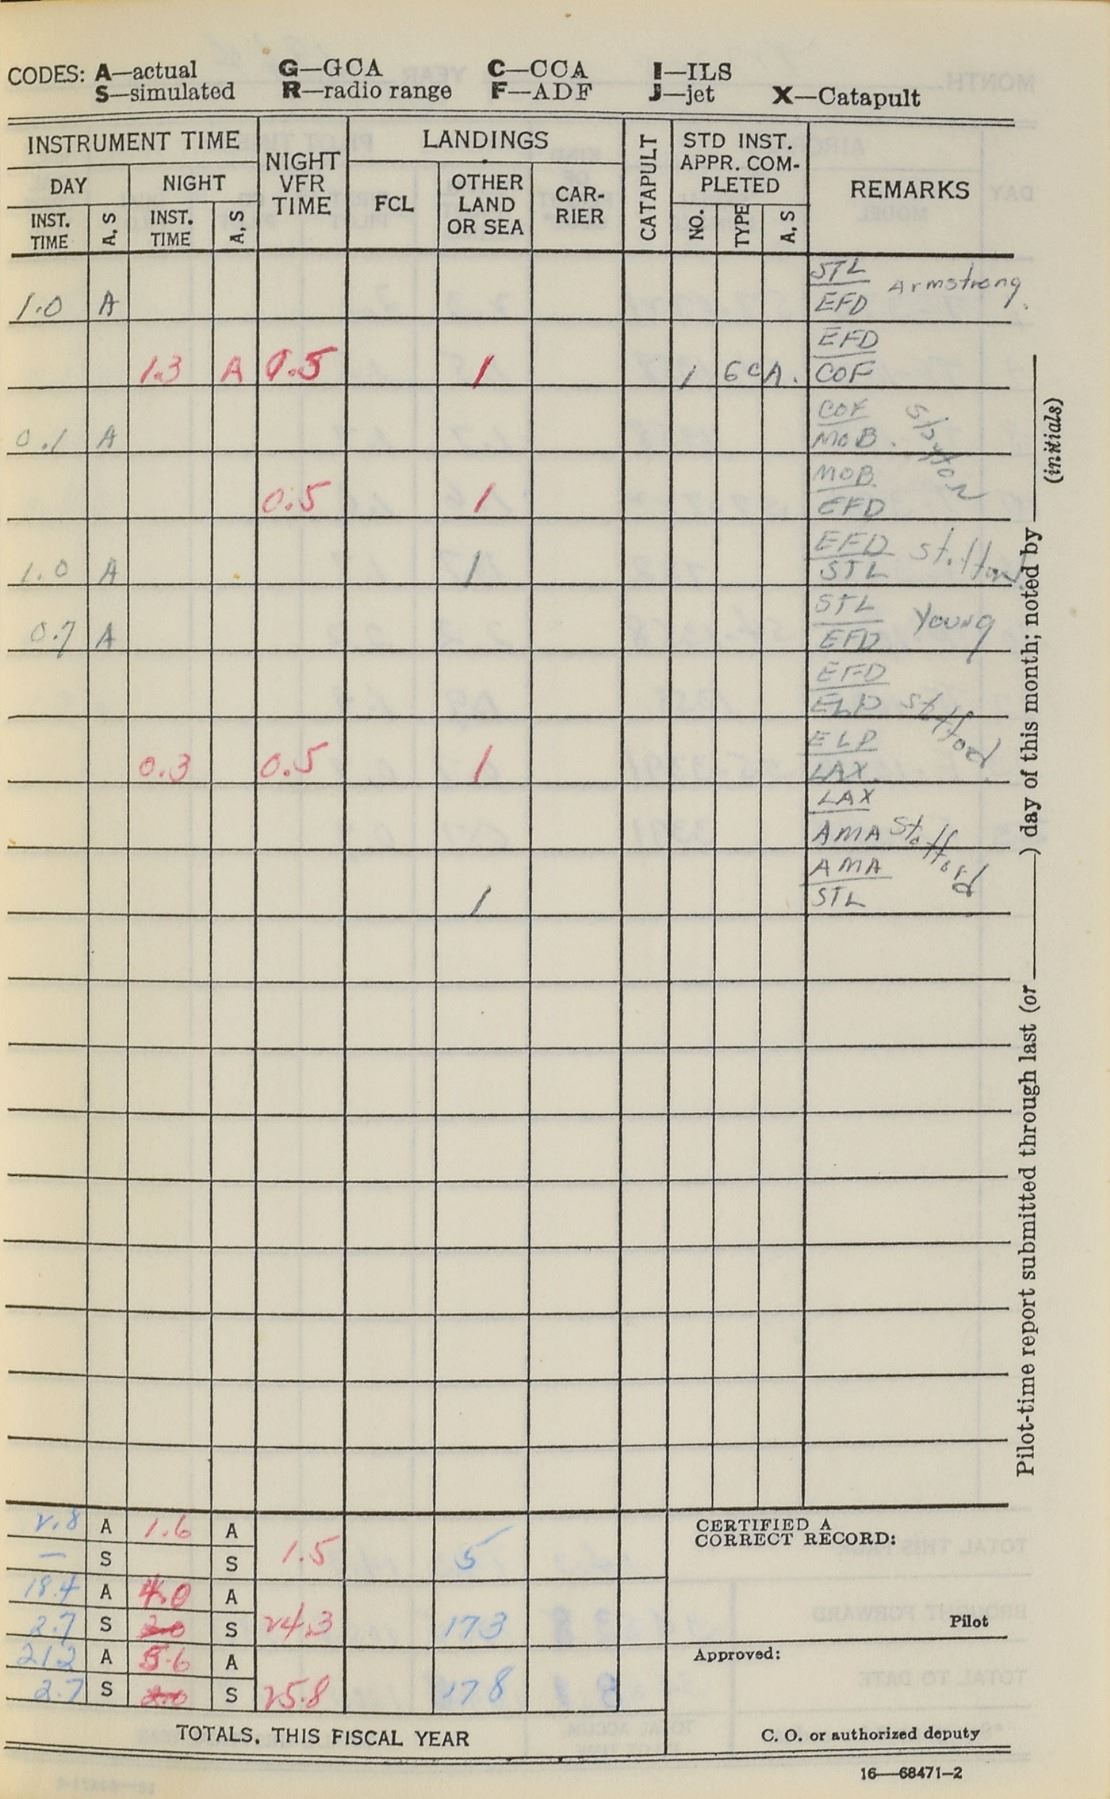 CODES: A—actual G—GCA C—CCA I—ILS
S—simulated R—radio range F—ADF J—jet X—Catapult
INSTRUMENT TIME
NIGHT VFR TIME
LANDINGS
CATAPULT
STD INST. APPR. COMPLETED
REMARKS
DAY
NIGHT
FCL
OTHER LAND OR SEA
CARRIER
INST. TIME
A, S
INST. TIME
A, S
NO.
TYPE
A, S
1.0 A STL EFD Armstrong
1.3 A 0.5 1 1 GCA. EFD COF
0.1 A COF MOB.
0.5 1 MOB. EFD
1.0 A 1 EFD STL Stafford
0.7 A STL EFD Young
EFD ELP Stafford
0.3 0.5 1 ELP LAX
LAX AMA Stafford
1 AMA STL
2.8 A 1.6 A
— S S 1.5 5
18.4 A 4.0 A
2.7 S 2.0 S 24.3 173
21.2 A 5.6 A
2.7 S 2.0 S 25.8 178
TOTALS, THIS FISCAL YEAR
CERTIFIED A CORRECT RECORD:
Pilot
Approved:
C. O. or authorized deputy
16—68471-2
Pilot-time report submitted through last (or ) day of this month; noted by (initials)